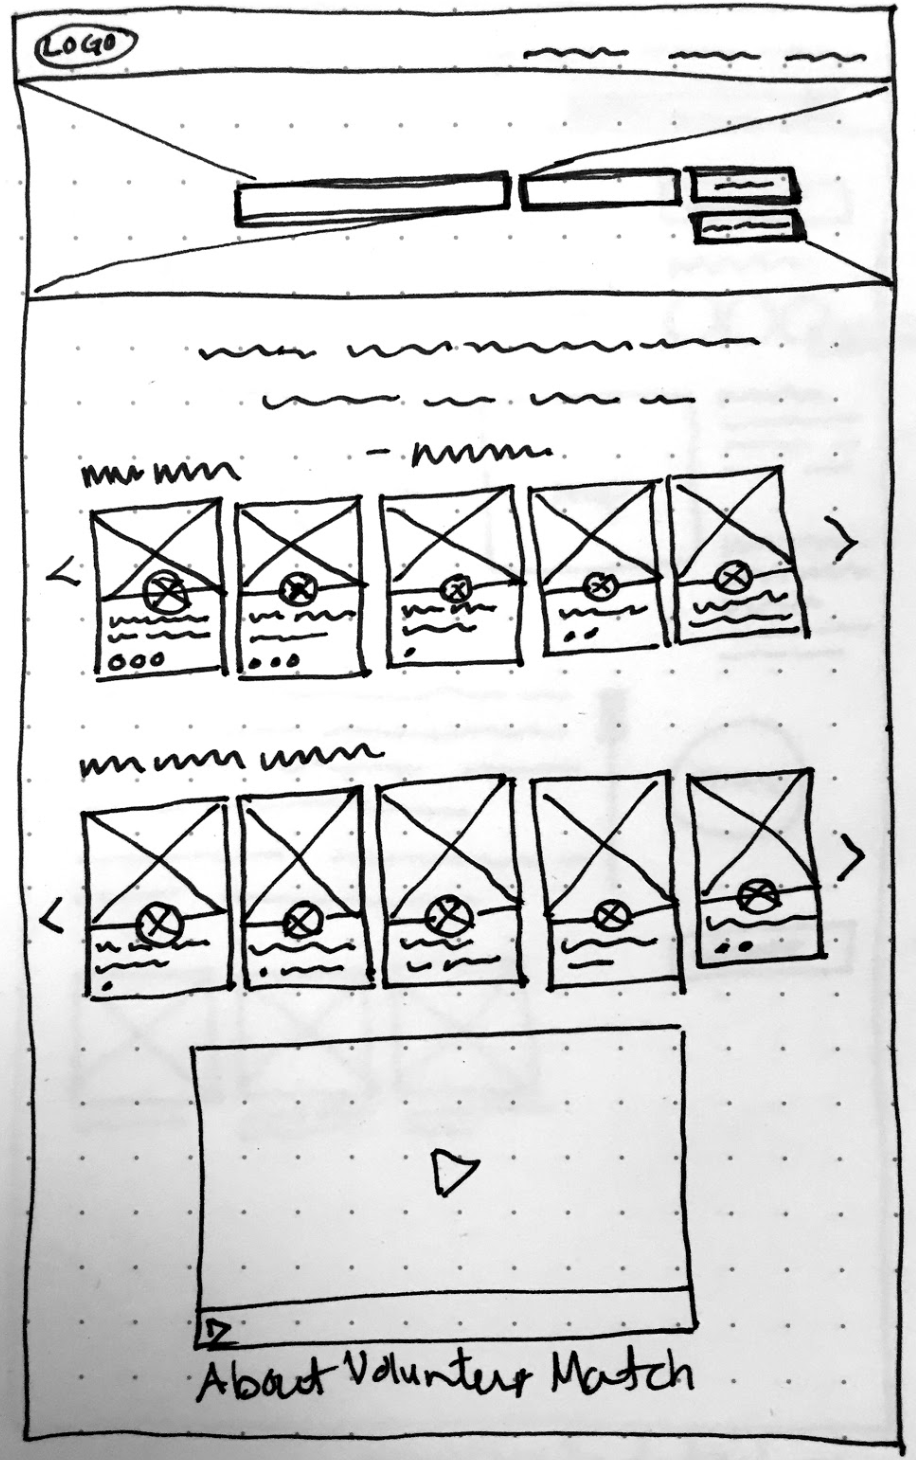 LOGO
About Volunteer Match